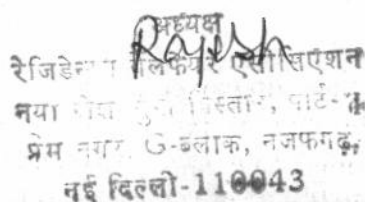 अध्यक्ष
Rajesh
रेजिडेन्स वेलफेयर एसोसिएशन
नया विस्तार, पार्ट-
प्रेम नगर G-ब्लाक, नजफगढ़,
नई दिल्ली-110043